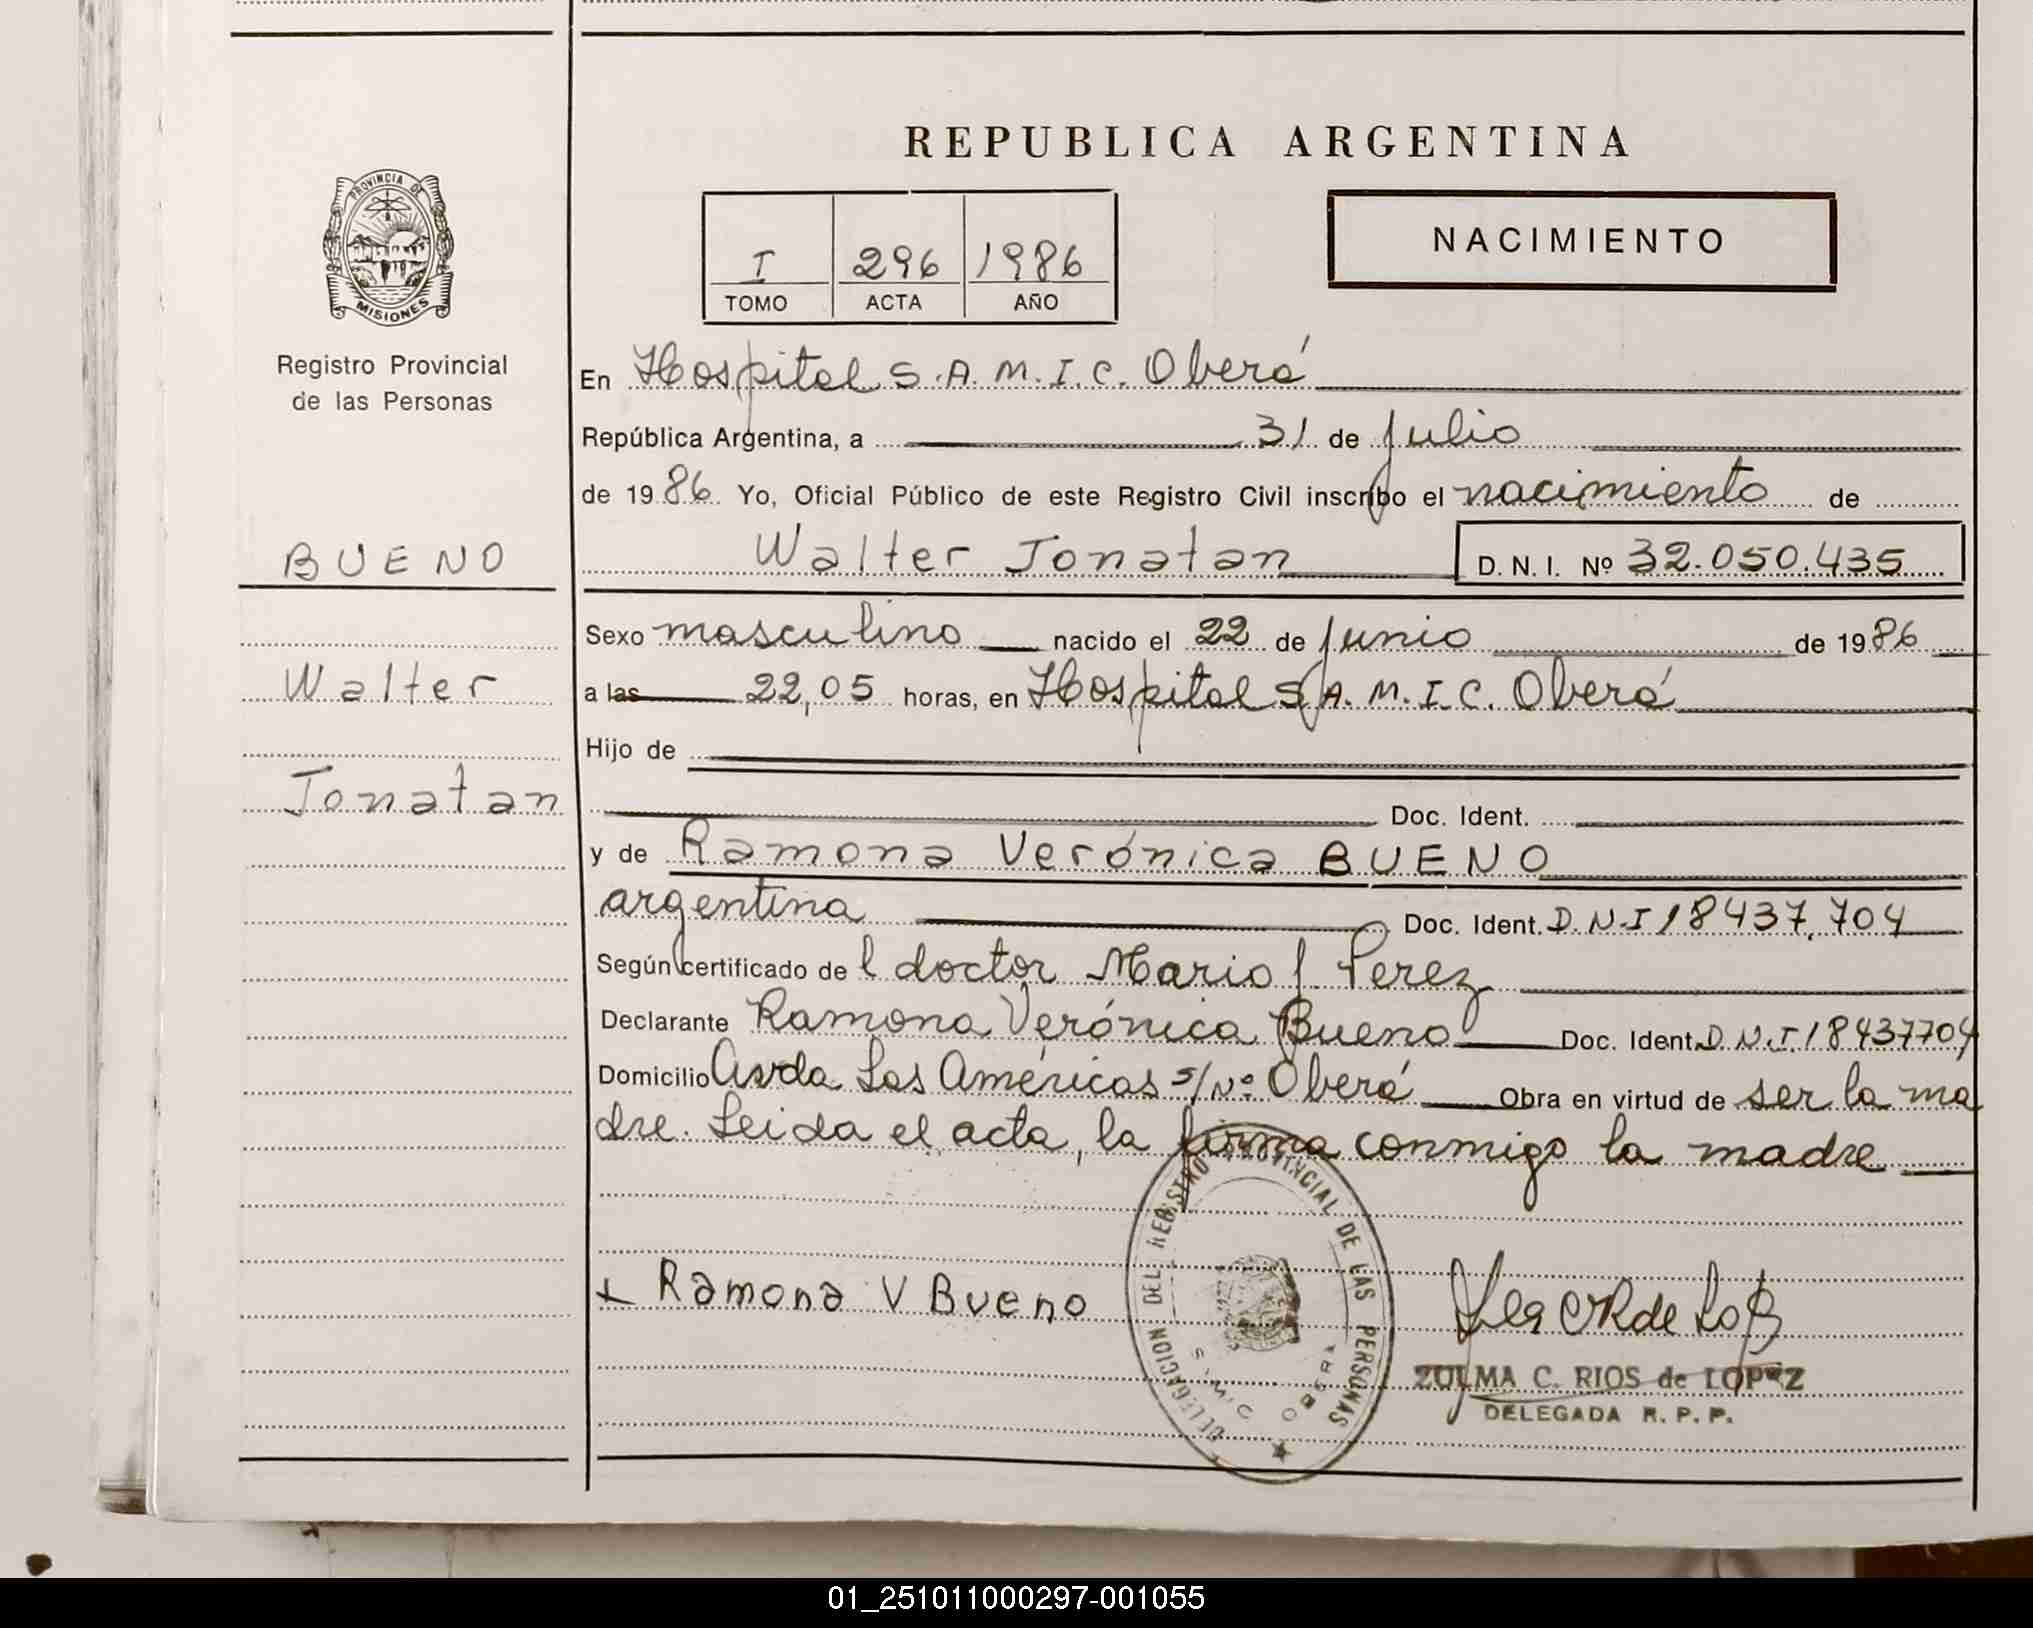 REPUBLICA ARGENTINA
PROVINCIA DE
MISIONES
Registro Provincial
de las Personas
NACIMIENTO
I 296 1986
TOMO ACTA AÑO
En Hospital S.A.M.I.C. Oberá
República Argentina, a 31 de julio
de 1986. Yo, Oficial Público de este Registro Civil inscribo el nacimiento de
BUENO
Walter Jonatan D.N.I. Nº 32.050.435
Sexo masculino nacido el 22 de junio de 1986
Walter
a las 22,05 horas, en Hospital S.A.M.I.C. Oberá
Hijo de
Jonatan
Doc. Ident.
y de Ramona Verónica BUENO
argentina Doc. Ident. D.N.I 18437.704
Según certificado del doctor Mario J. Perez
Declarante Ramona Verónica Bueno Doc. Ident. D.N.I. 18437704
Domicilio Avda Las Américas s/Nº Oberá Obra en virtud de ser la ma
dre. Leida el acta, la firma conmigo la madre
DELEGACION DEL REGISTRO PROVINCIAL DE LAS PERSONAS
OBERA
Ramona V Bueno
ZULMA C. RIOS de LOPEZ
DELEGADA R.P.P.
01_251011000297-001055